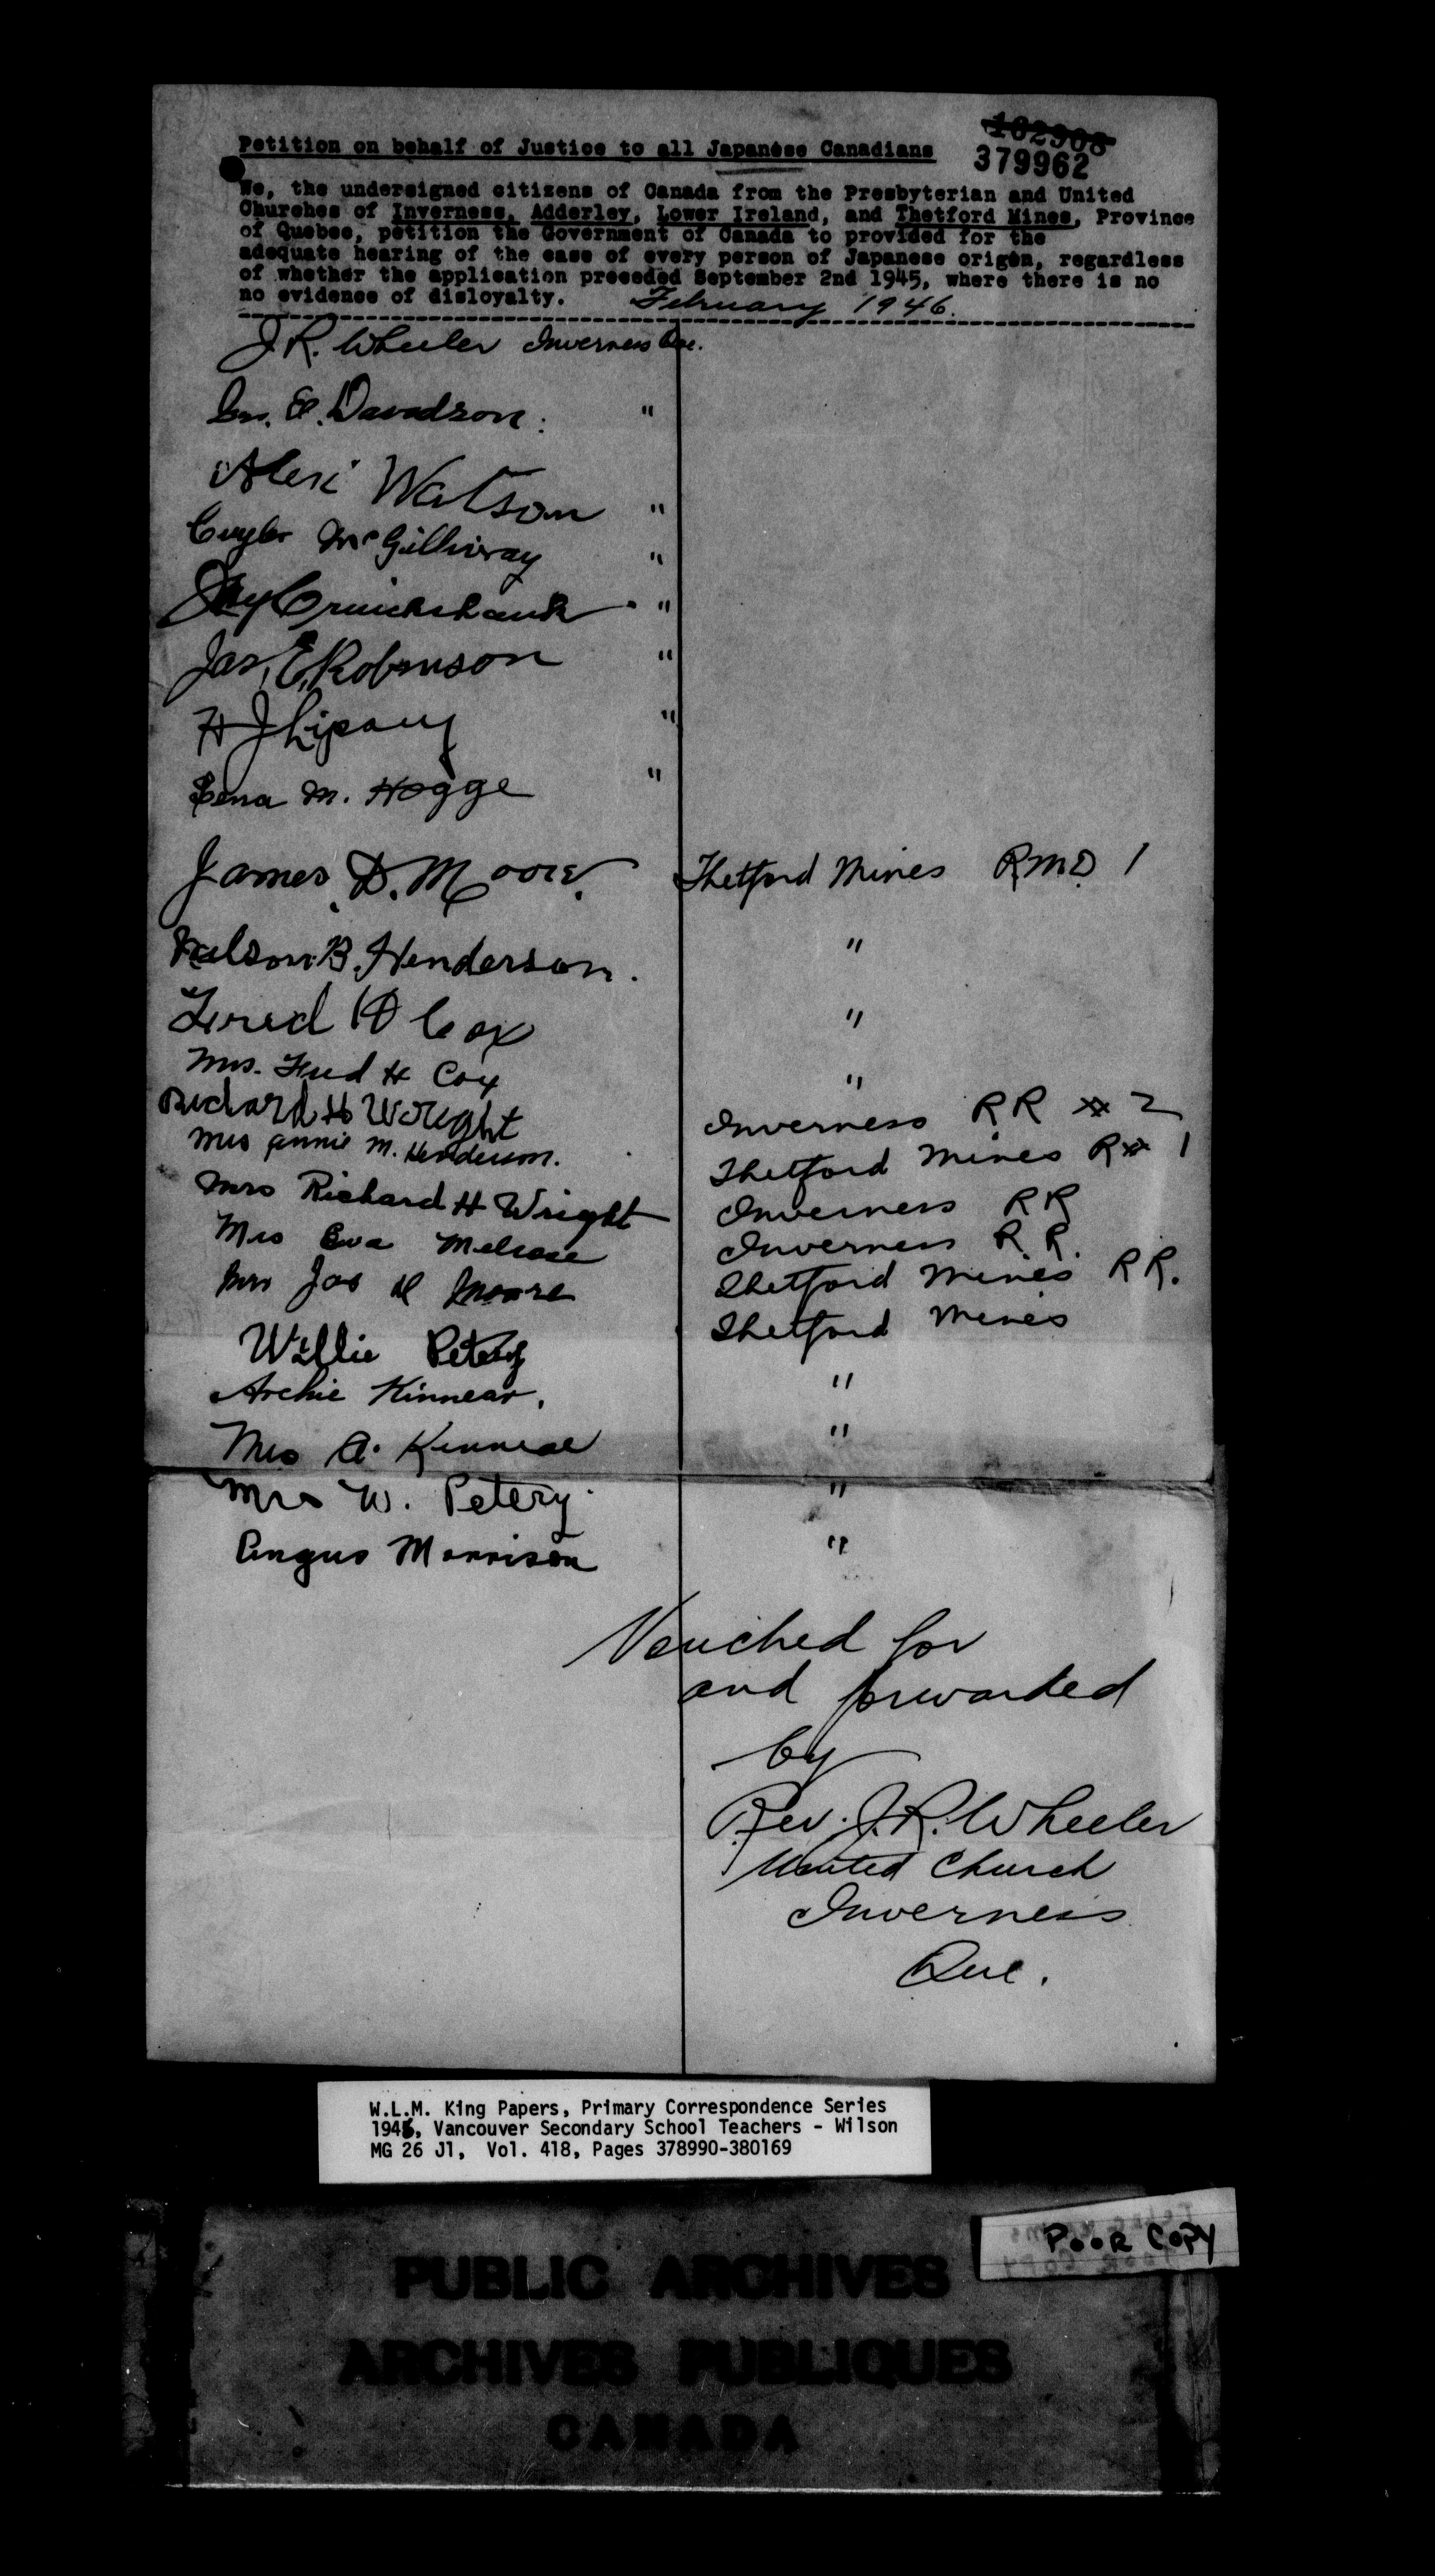 102908
379962
Petition on behalf of Justice to all Japanese Canadians
We, the undersigned citizens of Canada from the Presbyterian and United
Churches of Inverness, Adderley, Lower Ireland, and Thetford Mines, Province
of Quebec, petition the Government of Canada to provided for the
adequate hearing of the case of every person of Japanese origen, regardless
of whether the application preceded September 2nd 1945, where there is no
no evidence of disloyalty. February 1946.
J.R. Wheeler Inverness Que.
E. Davidson. "
Watson "
McGillivray "
Cruickshank "
Jas. E. Robinson "
H J "
M. Hogge "
James D. Moore. Thetford Mines RMD 1
Nelson B. Henderson. "
Fred H Cox "
Mrs. Fred H Cox "
Richard H Wright Inverness RR # 2
Mrs Annie M. Henderson. Thetford Mines R# 1
Mrs Richard H Wright Inverness RR
Mrs Eva Melrose Inverness R.R.
Mrs Jas D Moore Thetford Mines RR.
Willie Petery Thetford Mines
Archie Kinnear. "
Mrs A. Kinnear "
Mrs W. Petery. "
Angus Morrison "
Vouched for
and forwarded
by
Rev. J.R. Wheeler
United Church
Inverness
Que.
W.L.M. King Papers, Primary Correspondence Series
1946, Vancouver Secondary School Teachers - Wilson
MG 26 J1, Vol. 418, Pages 378990-380169
POOR COPY
PUBLIC ARCHIVES
ARCHIVES PUBLIQUES
CANADA